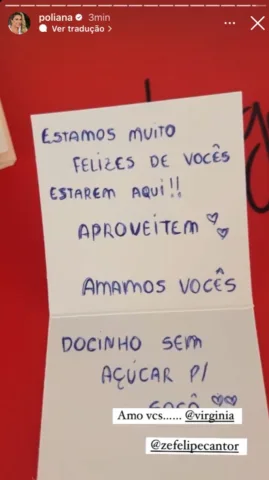 poliana 3min
Ver tradução
ESTAMOS MUITO
FELIZES DE VOCÊS
ESTAREM AQUI!!
APROVEITEM
AMAMOS VOCÊS
DOCINHO SEM
AÇÚCAR P/
Amo vcs...... @virginia
@zefelipecantor